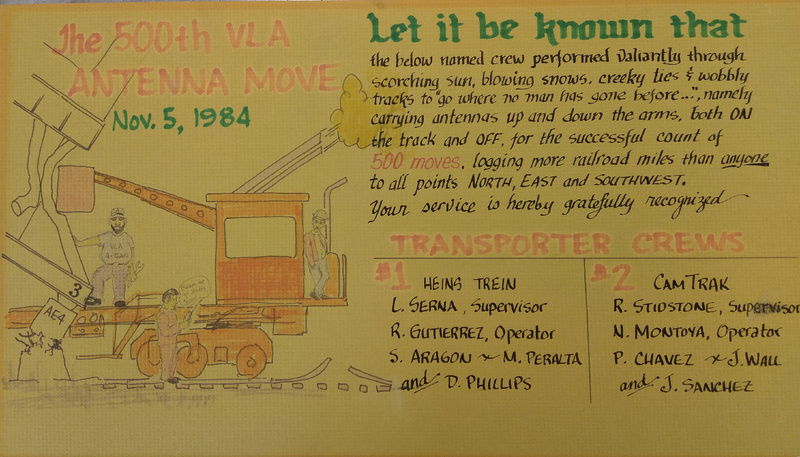 The 500th VLA
ANTENNA MOVE
Nov. 5, 1984
Let it be known that
the below named crew performed valiantly through
scorching sun, blowing snows, creeky ties & wobbly
tracks to "go where no man has gone before...", namely
carrying antennas up and down the arms, both ON
the track and OFF, for the successful count of
500 moves, logging more railroad miles than anyone
to all points NORTH, EAST and SOUTHWEST.
Your service is hereby gratefully recognized
TRANSPORTER CREWS
#1 HEINS TREIN
L. SERNA, Supervisor
R. GUTIERREZ, Operator
S. ARAGON & M. PERALTA
and D. PHILLIPS
#2 CAMTRAK
R. STIDSTONE, Supervisor
N. MONTOYA, Operator
P. CHAVEZ & J. WALL
and J. SANCHEZ
VLA
3
AE4